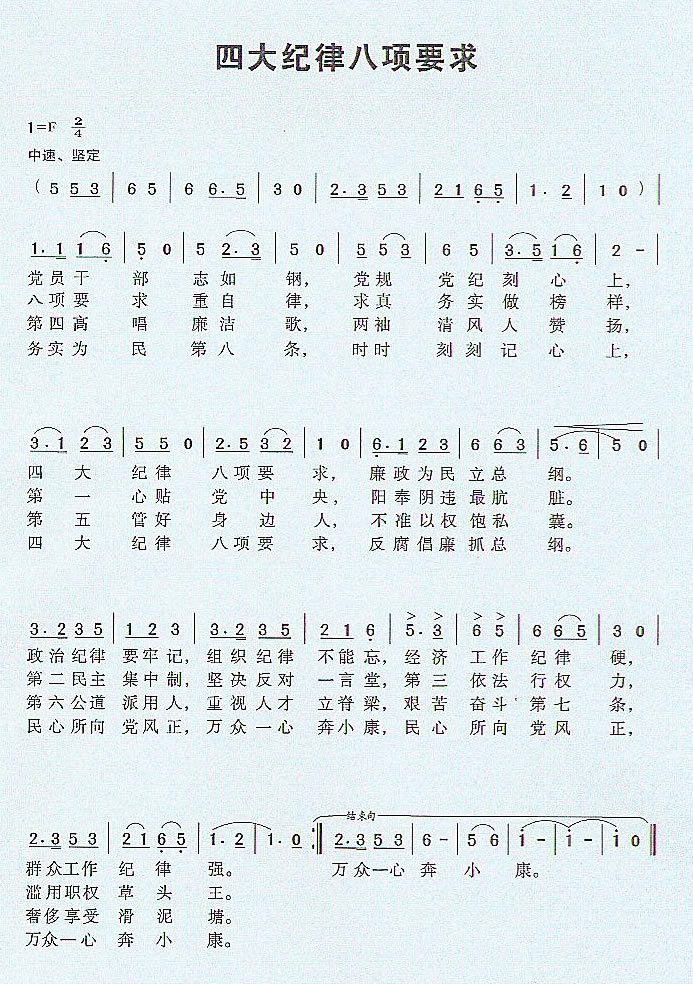 四大纪律八项要求
1=F 2/4
中速、坚定
( 5 5 3 | 6 5 | 6 6·5 | 3 0 | 2·3 5 3 | 2 1 6 5 | 1· 2 | 1 0 ) |
1·1 1 6 | 5 0 | 5 2·3 | 5 0 | 5 5 3 | 6 5 | 3·5 1 6 | 2 - |
党员干 部 志如 钢， 党规 党纪刻 心 上，
八项要 求 重自 律， 求真 务实做 榜 样，
第四高 唱 廉洁 歌， 两袖 清风人 赞 扬，
务实为 民 第八 条， 时时 刻刻记 心 上，
3·1 2 3 | 5 5 0 | 2·5 3 2 | 1 0 | 6·1 2 3 | 6 6 3 | 5·6 | 5 0 |
四 大 纪律 八项要 求， 廉政为民 立总 纲。
第 一 心贴 党 中 央， 阳奉阴违 最肮 脏。
第 五 管好 身 边 人， 不准以权 饱私 囊。
四 大 纪律 八项要 求， 反腐倡廉 抓总 纲。
3·2 3 5 | 1 2 3 | 3·2 3 5 | 2 1 6 | 5· 3 | 6 5 | 6 6 5 | 3 0 |
政治纪律 要牢记， 组织纪律 不能忘， 经济 工作 纪律 硬，
第二民主 集中制， 坚决反对 一言堂， 第三 依法 行权 力，
第六公道 派用人， 重视人才 立脊梁， 艰苦 奋斗 第七 条，
民心所向 党风正， 万众一心 奔小康， 民心 所向 党风 正，
结束句
2·3 5 3 | 2 1 6 5 | 1· 2 | 1· 0 :| 2·3 5 3 | 6 - | 5 6 | 1 - | 1 - | 1 0 ‖
群众工作 纪 律 强。 万众一心 奔 小 康。
滥用职权 草 头 王。
奢侈享受 滑 泥 塘。
万众一心 奔 小 康。